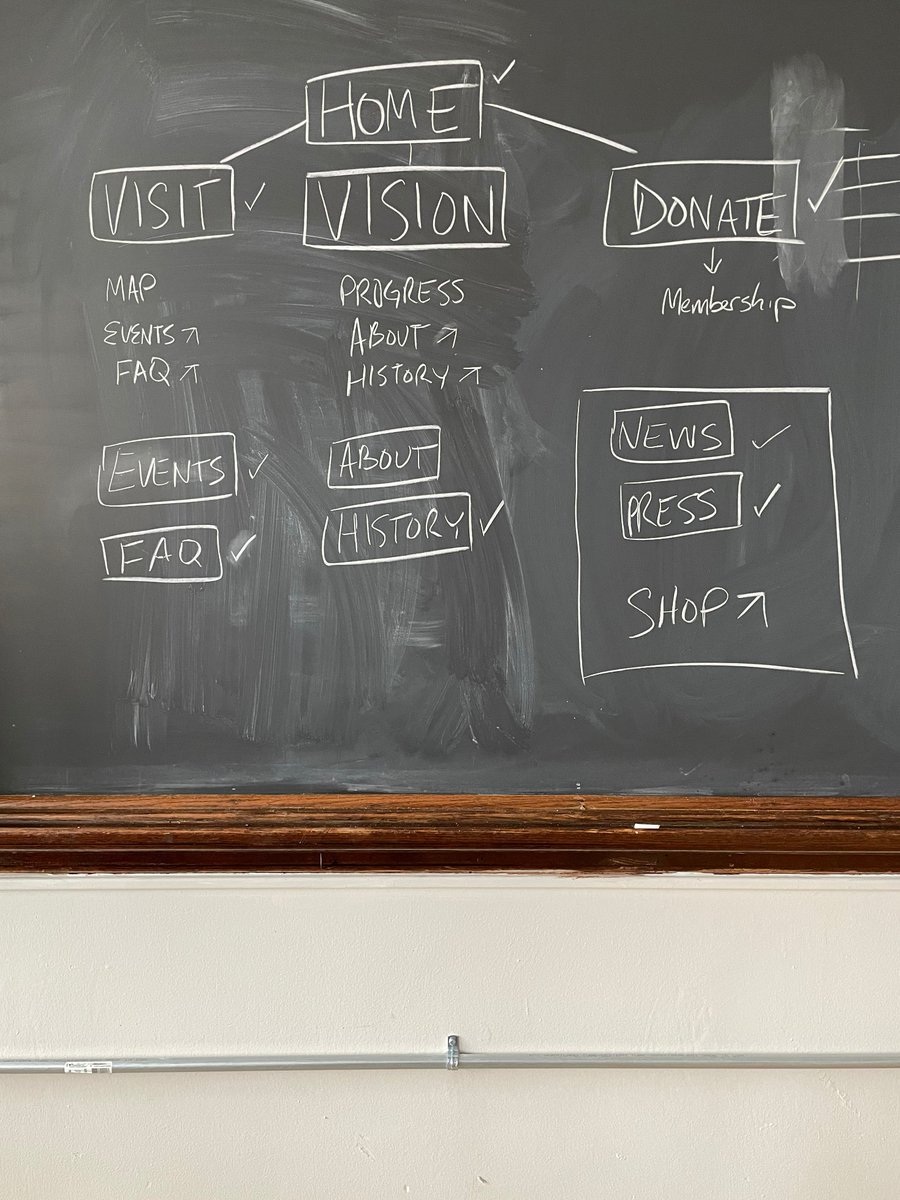 HOME ✓
VISIT ✓
MAP
EVENTS ↗
FAQ ↗
EVENTS ✓
FAQ ✓
VISION
PROGRESS
ABOUT ↗
HISTORY ↗
ABOUT
HISTORY ✓
DONATE ✓
↓
Membership
NEWS ✓
PRESS ✓
SHOP ↗